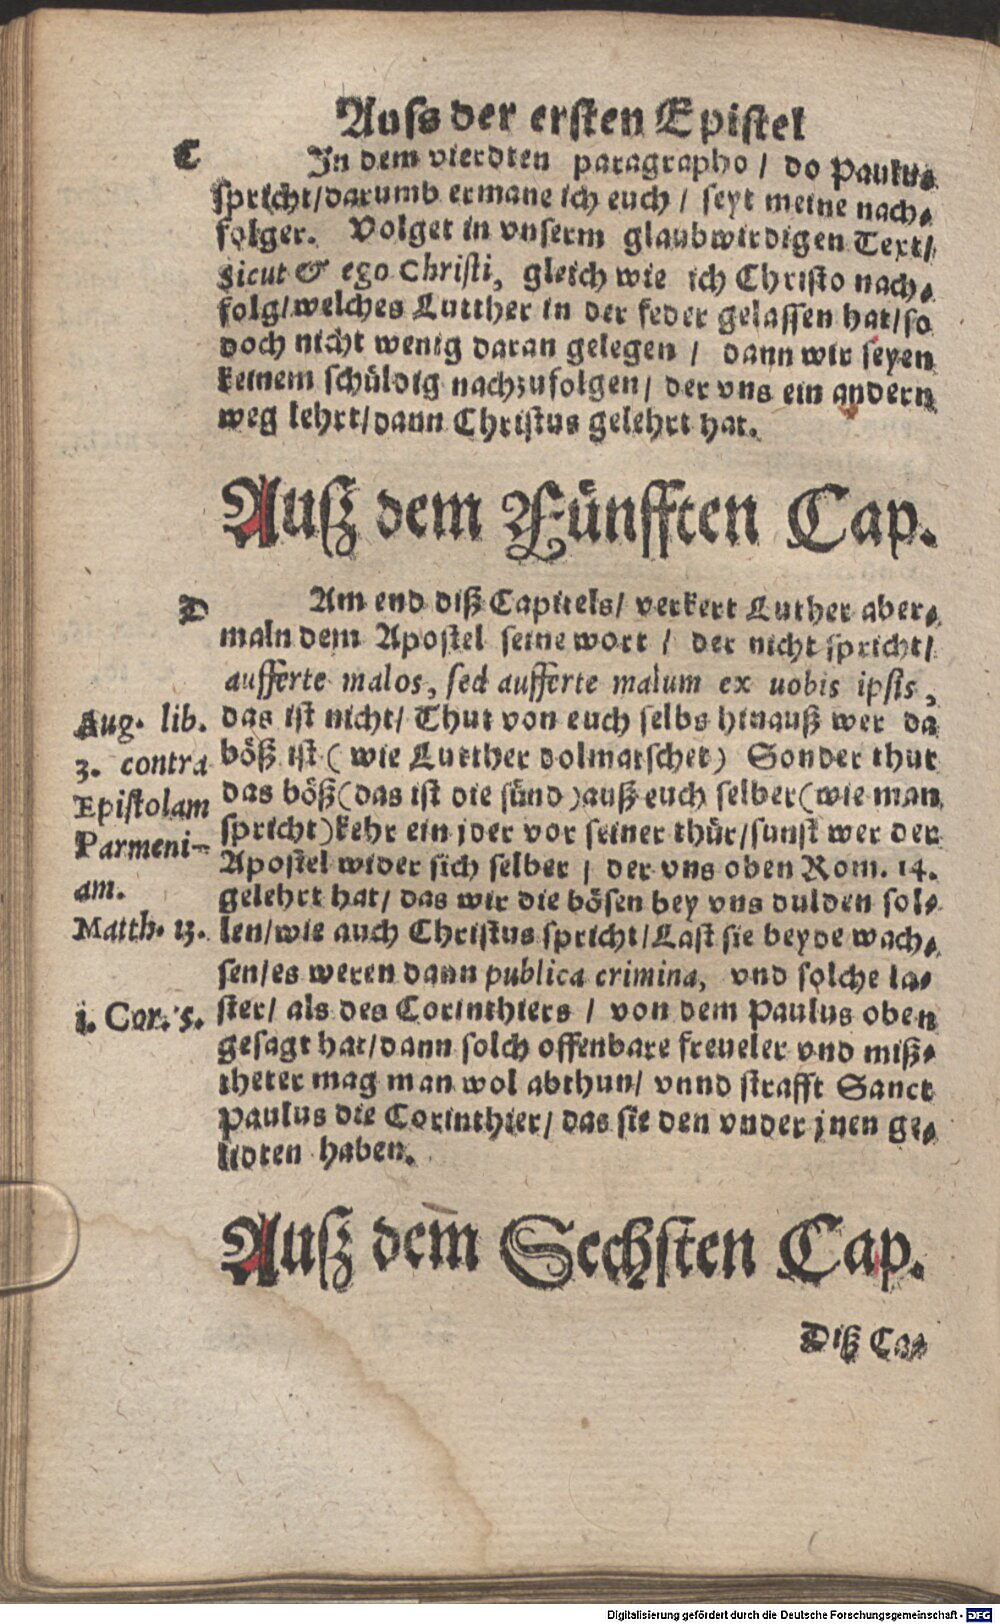 Auss der ersten Epistel
C
In dem vierdten paragrapho / do Paulus
spricht/darumb ermane ich euch / seyt meine nach-
folger. Volget in vnserm glaubwirdigen Text/
Sicut & ego Christi, gleich wie ich Christo nach-
folg/welches Lutther in der feder gelassen hat/so
doch nicht wenig daran gelegen / dann wir seyen
keinem schüldig nachzufolgen/ der vns ein andern
weg lehrt/dann Christus gelehrt hat.
Auß dem Fünfften Cap.
D
Am end diß Capitels/ verkert Luther aber-
maln dem Apostel seine wort / der nicht spricht/
aufferte malos, sed aufferte malum ex uobis ipsis,
das ist nicht/ Thut von euch selbs hinauß wer da
böß ist ( wie Lutther dolmatschet) Sonder thut
das böß(das ist die sünd)auß euch selber(wie man
spricht)kehr ein jder vor seiner thür/sunst wer der
Apostel wider sich selber / der vns oben Rom. 14.
gelehrt hat/ das wir die bösen bey vns dulden sol-
len/wie auch Christus spricht/Last sie beyde wach-
sen/es weren dann publica crimina, vnd solche la-
ster/ als des Corinthiers / von dem Paulus oben
gesagt hat/dann solch offenbare freueler vnd miß-
theter mag man wol abthun/ vnnd strafft Sanct
Paulus die Corinthier/ das sie den vnder jnen ge-
lidten haben.
Aug. lib.
3. contra
Epistolam
Parmeni-
am.
Matth. 13.
1. Cor. 5.
Auß dem Sechsten Cap.
Diß Ca-
Digitalisierung gefördert durch die Deutsche Forschungsgemeinschaft - DFG